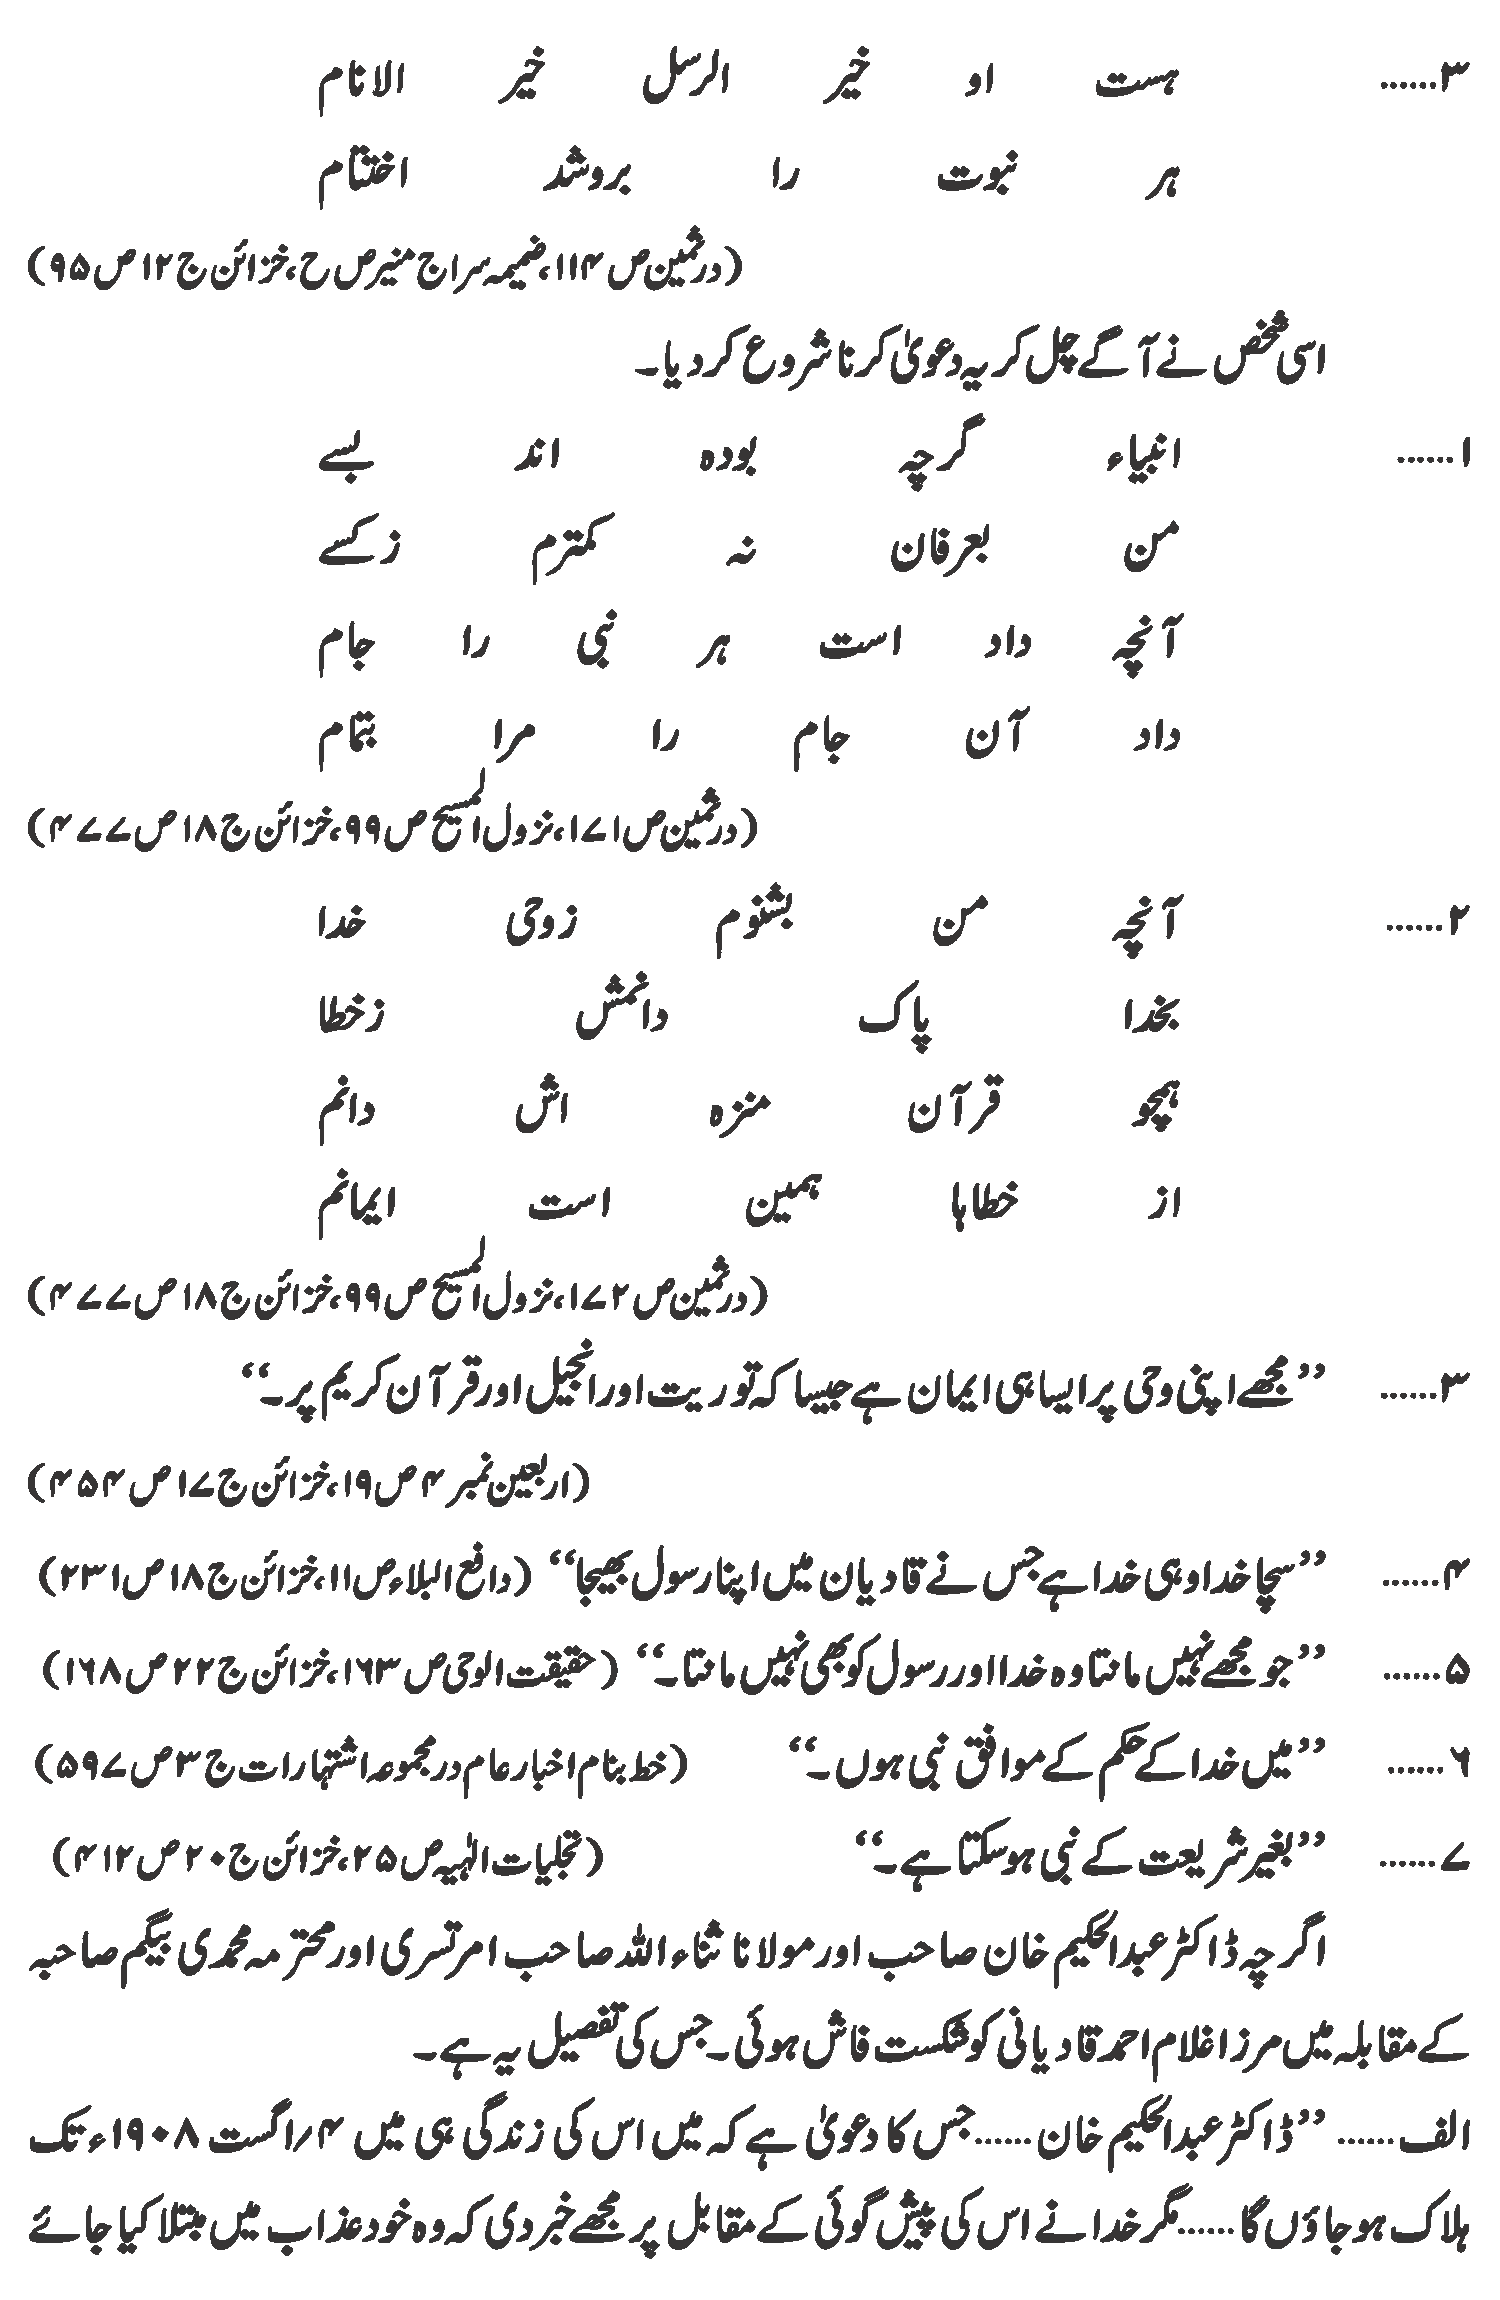 ۳...... ہست او خیر الرسل خیر الانام
ہر نبوت را بروشد اختتام
(درثمین ص۱۱۴، ضمیمہ سراج منیر ص ح، خزائن ج۱۲ ص۹۵)
اسی شخص نے آگے چل کر یہ دعویٰ کرنا شروع کردیا۔
۱...... انبیاء گرچہ بودہ اند بسے
من بعرفان نہ کمترم زکسے
آنچہ داد است ہر نبی را جام
داد آن جام را مرا بتمام
(درثمین ص۱۷۱، نزول المسیح ص۹۹، خزائن ج۱۸ ص۴۷۷)
۲...... آنچہ من بشنوم زوحی خدا
بخدا پاک دانمش زخطا
ہمچو قرآن منزہ اش دانم
از خطاہا ہمین است ایمانم
(درثمین ص۱۷۲، نزول المسیح ص۹۹، خزائن ج۱۸ ص۴۷۷)
۳...... ’’مجھے اپنی وحی پر ایسا ہی ایمان ہے جیسا کہ توریت اور انجیل اور قرآن کریم پر۔‘‘
(اربعین نمبر۴ ص۱۹، خزائن ج۱۷ ص۴۵۴)
۴...... ’’سچا خدا وہی خدا ہے جس نے قادیان میں اپنا رسول بھیجا‘‘ (دافع البلاء ص۱۱، خزائن ج۱۸ ص۲۳۱)
۵...... ’’جو مجھے نہیں مانتا وہ خدا اور رسول کو بھی نہیں مانتا۔‘‘ (حقیقت الوحی ص۱۶۳، خزائن ج۲۲ ص۱۶۸)
۶...... ’’میں خدا کے حکم کے موافق نبی ہوں۔‘‘ (خط بنام اخبار عام در مجموعہ اشتہارات ج۳ ص۵۹۷)
۷...... ’’بغیر شریعت کے نبی ہوسکتا ہے۔‘‘ (تجلیات الٰہیہ ص۲۵، خزائن ج۲۰ ص۴۱۲)
اگرچہ ڈاکٹر عبدالحکیم خان صاحب اور مولانا ثناء اللہ صاحب امرتسری اور محترمہ محمدی بیگم صاحبہ
کے مقابلہ میں مرزا غلام احمد قادیانی کو شکست فاش ہوئی۔ جس کی تفصیل یہ ہے۔
الف...... ’’ڈاکٹر عبدالحکیم خان...... جس کا دعویٰ ہے کہ میں اس کی زندگی ہی میں ۴؍اگست ۱۹۰۸ء تک
ہلاک ہو جاؤں گا...... مگر خدا نے اس کی پیش گوئی کے مقابل پر مجھے خبر دی کہ وہ خود عذاب میں مبتلا کیا جائے